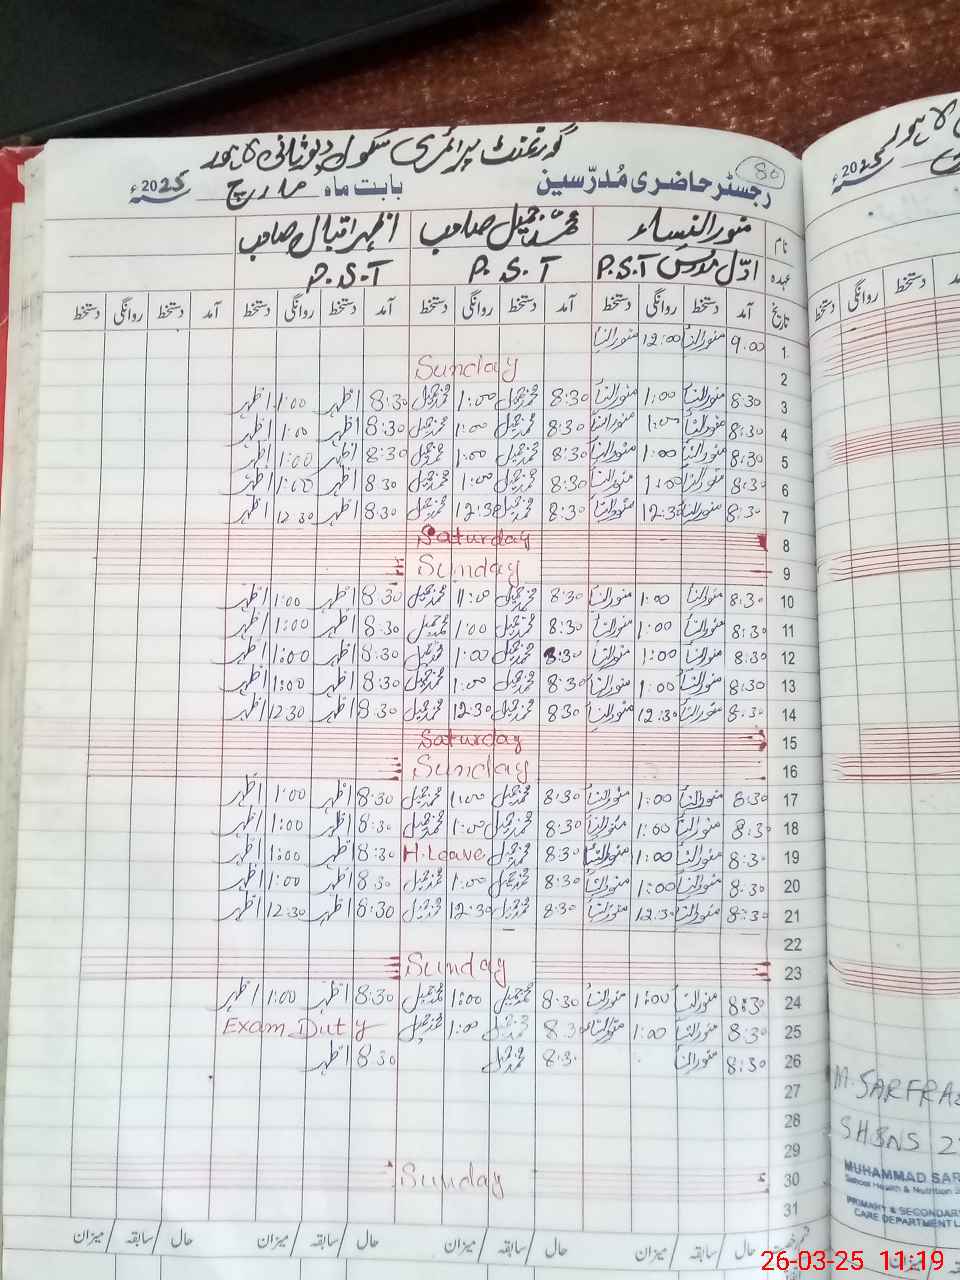 گورنمنٹ پرائمری سکول دیوثانی لاہور
80
رجسٹر حاضری مُدرّسین بابت ماہ مارچ 2025ء
نام منورالنساء محمد جمیل صاحب اظہر اقبال صاحب
عہدہ اوّل مدرس P.S.T P.S.T P.S.T
تاریخ آمد دستخط روانگی دستخط آمد دستخط روانگی دستخط آمد دستخط روانگی دستخط آمد دستخط روانگی دستخط
1 9.00 منورالنسا 12:00 منورالنسا
2 Sunday
3 8:30 منورالنسا 1:00 منورالنسا 8:30 محمد جمیل 1:00 محمد جمیل 8:30 اظہر 1:00 اظہر
4 8:30 منورالنسا 1:00 منورالنسا 8:30 محمد جمیل 1:00 محمد جمیل 8:30 اظہر 1:00 اظہر
5 8:30 منورالنسا 1:00 منورالنسا 8:30 محمد جمیل 1:00 محمد جمیل 8:30 اظہر 1:00 اظہر
6 8:30 منورالنسا 1:00 منورالنسا 8:30 محمد جمیل 1:00 محمد جمیل 8:30 اظہر 1:00 اظہر
7 8:30 منورالنسا 12:30 منورالنسا 8:30 محمد جمیل 12:30 محمد جمیل 8:30 اظہر 12:30 اظہر
8 Saturday
9 Sunday
10 8:30 منورالنسا 1:00 منورالنسا 8:30 محمد جمیل 1:00 محمد جمیل 8:30 اظہر 1:00 اظہر
11 8:30 منورالنسا 1:00 منورالنسا 8:30 محمد جمیل 1:00 محمد جمیل 8:30 اظہر 1:00 اظہر
12 8:30 منورالنسا 1:00 منورالنسا 8:30 محمد جمیل 1:00 محمد جمیل 8:30 اظہر 1:00 اظہر
13 8:30 منورالنسا 1:00 منورالنسا 8:30 محمد جمیل 1:00 محمد جمیل 8:30 اظہر 1:00 اظہر
14 8:30 منورالنسا 12:30 منورالنسا 8:30 محمد جمیل 12:30 محمد جمیل 8:30 اظہر 12:30 اظہر
15 Saturday
16 Sunday
17 8:30 منورالنسا 1:00 منورالنسا 8:30 محمد جمیل 1:00 محمد جمیل 8:30 اظہر 1:00 اظہر
18 8:30 منورالنسا 1:00 منورالنسا 8:30 محمد جمیل 1:00 محمد جمیل 8:30 اظہر 1:00 اظہر
19 8:30 منورالنسا 1:00 منورالنسا 8:30 محمد جمیل H.Leave 8:30 اظہر 1:00 اظہر
20 8:30 منورالنسا 1:00 منورالنسا 8:30 محمد جمیل 1:00 محمد جمیل 8:30 اظہر 1:00 اظہر
21 8:30 منورالنسا 12:30 منورالنسا 8:30 محمد جمیل 12:30 محمد جمیل 8:30 اظہر 12:30 اظہر
22
23 Sunday
24 8:30 منورالنسا 1:00 منورالنسا 8:30 محمد جمیل 1:00 محمد جمیل 8:30 اظہر 1:00 اظہر
25 8:30 منورالنسا 1:00 منورالنسا 8:30 محمد جمیل 1:00 محمد جمیل Exam Duty
26 8:30 منورالنسا 8:30 محمد جمیل 8:30 اظہر
27
28
29
30 Sunday
31
حال سابقہ میزان حال سابقہ میزان حال سابقہ میزان حال سابقہ میزان
2025ء
دستخط روانگی دستخط
M. SARFRAZ
SH&NS
MUHAMMAD SAR
School Health & Nutrition
PRIMARY & SECONDARY
CARE DEPARTMENT L
میزان
26-03-25 11:19